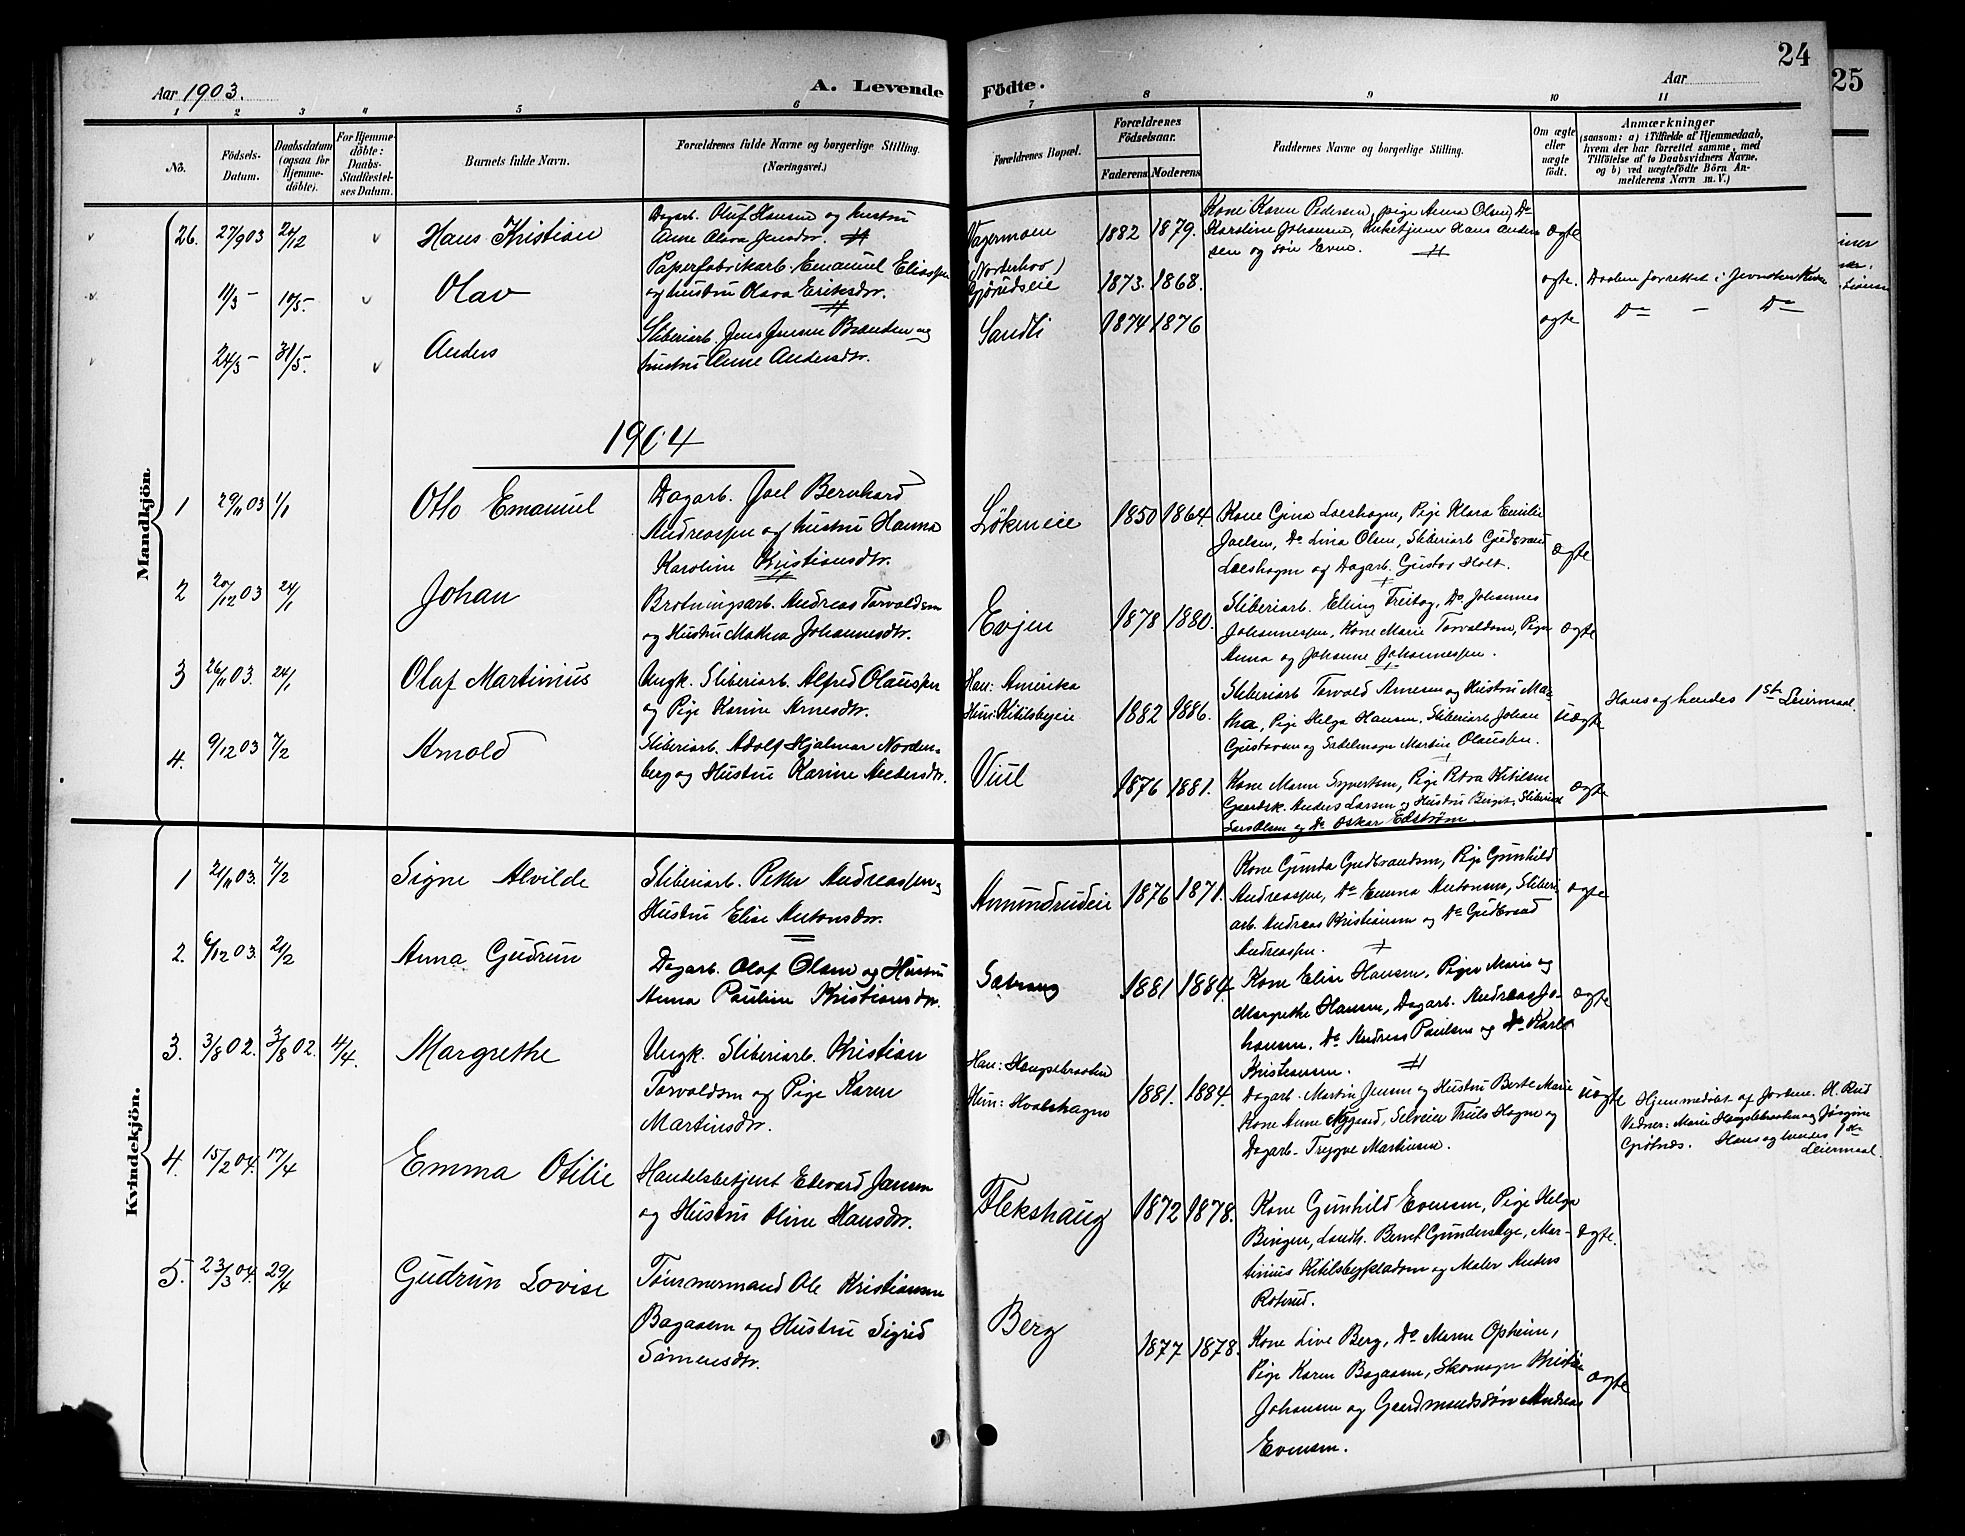 24
25
Aar 1903.
A. Levende Födte.
Aar
1 2 3 4 5 6 7 8 9 10 11
No.
Födsels-Datum.
Daabsdatum (ogsaa for Hjemmedöbte).
For Hjemmedöbte: Daabs-Stadfæstelses Datum.
Barnets fulde Navn.
Forældrenes fulde Navne og borgerlige Stilling. (Næringsvei.)
Forældrenes Bopæl.
Forældrenes Födselsaar.
Faderens
Moderens
Faddernes Navne og borgerlige Stilling.
Om ægte eller uægte födt.
Anmærkninger
(saasom: a) i Tilfælde af Hjemmedaab,
hvem der har forrettet samme, med
Tilföielse af to Daabsvidners Navne,
og b) ved uægtefödte Börn An-
melderens Navn m. V.)
Mandkjön.
26. 27/9 03 20/12 Hans Kristian
Dagarb. Oluf Hansen og hustru
Anne Olava Jensdtr.
Vagermoen
1882 1879.
Kone Karen Pedersen, pige Anna Olsen, Do
Karoline Johansen, Kirketjener Hans Ander
sen og søn Even.
ægte
11/3 - 10/5 - Olav
Paperfabrikarb. Emanuel Eliassen
og hustru Olava Eriksdtr.
(Norderhov)
1873. 1868.
ægte. Daaben forrettet i
24/3 - 31/5 - Anders
Sliberiarb. Jens Jensen Braaden og
hustru Anne Andersdtr.
Sandli
1874 1876
ægte Do - Do
1904
1 29/11 03 1/1 Otto Emanuel
Dagarb. Joel Bernhard
Andreassen og hustru Hanna
Karoline Kristiansdtr.
Løkeneie
1850 1864
Kone Gina Loeshagen, Pige Klara Emilie
Joelsen, Do Lina Olsen, Sliberiarb Gudbrand
Loeshagen og Dagarb. Gustav Holt.
ægte
2 20/12 03 24/1 Johan
Brotningsarb. Andreas Torvaldsen
og Hustru Mathea Johannesdtr.
Evjen
1878 1880.
Sliberiarb. Elling Freitag, Do Johannes
Johannessen, Kone Marie Torvaldsen, Piger
Anna og Johanne Johannessen.
ægte
3 26/11 03. 24/1 Olaf Martinius
Ungk. Sliberiarb. Alfred Olaussen
og Pige Karine Arnesdtr.
Han: Amerika
Hun: Kitilsbyeie
1882 1886.
Sliberiarb Torvald Arnesen og Hustru Mar-
tha, Pige Helga Hansen, Sliberiarb Johan
Gustavsen og Sadelmager Martin Olaussen.
uægte
Hans og hendes 1ste Leiermaal.
4. 9/12 03 7/2 Arnold
Sliberiarb. Adolf Hjalmar Norden-
berg og Hustru Karine Andersdtr.
Viul
1876 1881.
Kone Maren Syvertsen, Pige Petra Kitilsen
Gaardsk. Anders Larsen og Hustru Birgit, Sliberiarb
Lars Olsen og Do Oskar Edstrøm.
ægte
Kvindekjön.
1 21/11 03. 7/2 Signe Alvilde
Sliberiarb. Petter Andreassen og
Hustru Elise Antonsdtr.
Amundrudeie
1876 1871.
Kone Gunda Gudbrandsen, Pige Gunhild
Andreassen, Do Emma Antonsen, Sliberi
arb. Andreas Kristiansen og Do Gudbrand
Andreassen.
ægte
2. 6/12 03. 21/2 Anna Gudrun
Dagarb. Olaf Olsen og Hustru
Anna Pauline Kristiansdtr.
Sætrang
1881 1884.
Kone Elise Hansen, Piger Marie og
Margrethe Hansen, Dagarb. Andreas Jo-
hansen, Do Andreas Paulsen og Do Karl
Kristiansen.
ægte
3. 3/8 02. 3/8 02. 4/4. Margrethe
Ungk. Sliberiarb. Kristian
Torvaldsen og Pige Karen
Martinsdtr.
Han: Haugsbraaten
Hun: Hvalshagen
1881. 1884.
Dagarb. Martin Jensen og Hustru Berte Marie
Kone Anne Nygaard, Selveier Truls Hagen og
Dagarb. Trygve Martinsen.
uægte
Hjemmedøbt af Jordm. H. Rud
Vidner: Marie
Grøtnes. Hans og hendes 1ste
Leiermaal.
4. 15/2 04. 17/4 Emma Otilie
Handelsbetjent Edvard Jansen
og Hustru Oline Hansdtr.
Flekshaug
1872 1878.
Kone Gunhild Evensen, Pige Helga
Bingen, Landh. Bernt Gundersbye, Mar-
tinius Kitilsbypladsen og Maler Anders
Roterud.
ægte.
5. 23/3 04. 29/4 Gudrun Lovise
Tømmermand Ole Kristiansen
Bagaasen og Hustru Sigrid
Sørensdtr.
Berg
1877 1878.
Kone Live Berg, Do Maren Opheim,
Pige Karen Bagaasen, Skomager Kristian
Johansen og Gaardmandssøn Andreas
Evensen.
ægte